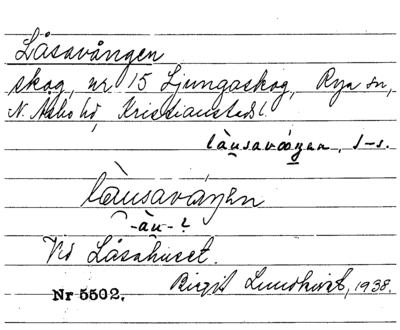 Låsavången
skog, nr 15 Ljungaskog, Rya sn,
N. Åsbo hd, Kristianstads l.
làusavåŋen, s-s.
làusavåŋen
-àu- ?
Vid Låsahuset.
Birgit Lundkvist, 1938.
Nr 5502.